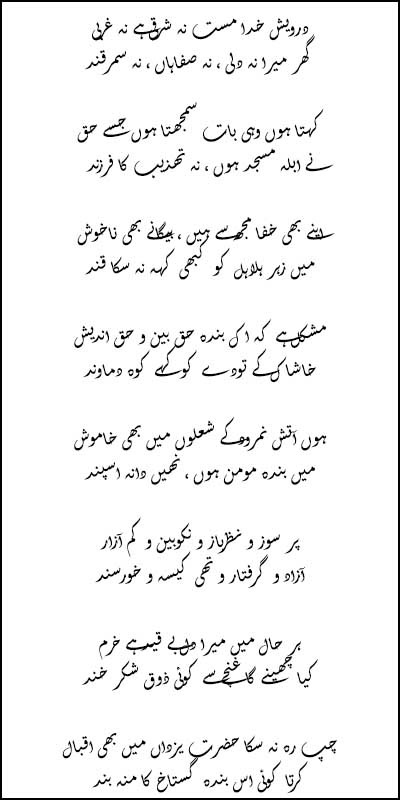 درویش خدا مست نہ شرقی ہے نہ غربی
گھر میرا نہ دلی ، نہ صفاہاں ، نہ سمرقند
کہتا ہوں وہی بات سمجھتا ہوں جسے حق
نے ابلہ مسجد ہوں ، نہ تہذیب کا فرزند
اپنے بھی خفا مجھ سے ہیں ، بیگانے بھی ناخوش
میں زہر ہلاہل کو کبھی کہہ نہ سکا قند
مشکل ہے کہ اک بندہ حق بین و حق اندیش
خاشاک کے تودے کو کہے کوہ دماوند
ہوں آتش نمرود کے شعلوں میں بھی خاموش
میں بندہ مومن ہوں ، نھیں دانہ اسپند
پر سوز و نظرباز و نکوبین و کم آزار
آزاد و گرفتار و تھی کیسہ و خورسند
ہر حال میں میرا دل بے قید ہے خرم
کیا چھینے گا غنچے سے کوئی ذوق شکر خند
چپ رہ نہ سکا حضرت یزداں میں بھی اقبال
کرتا کوئی اس بندہ گستاخ کا منہ بند